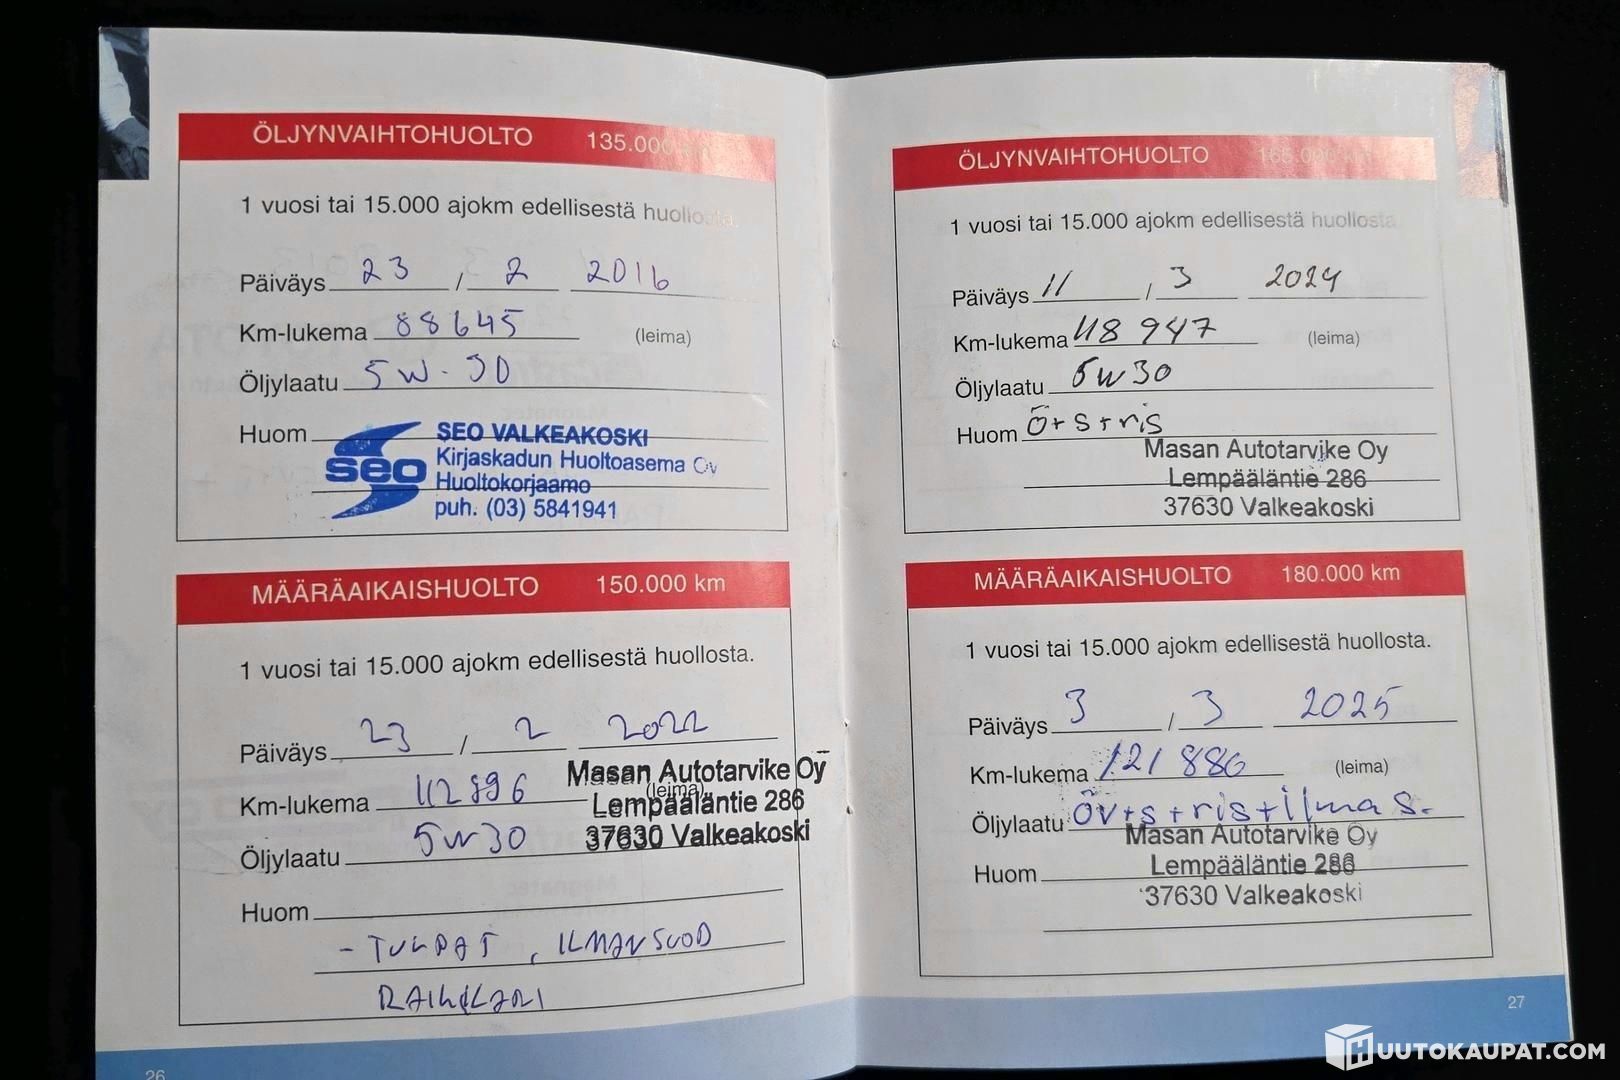 ÖLJYNVAIHTOHUOLTO 135.000 km
1 vuosi tai 15.000 ajokm edellisestä huollosta.
Päiväys 23 / 2 2016
Km-lukema 88645 (leima)
Öljylaatu 5W-30
Huom
seo
SEO VALKEAKOSKI
Kirjaskadun Huoltoasema Oy
Huoltokorjaamo
puh. (03) 5841941
MÄÄRÄAIKAISHUOLTO 150.000 km
1 vuosi tai 15.000 ajokm edellisestä huollosta.
Päiväys 23 / 2 2022
Km-lukema 112896 (leima)
Öljylaatu 5W30
Masan Autotarvike Oy
Lempääläntie 286
37630 Valkeakoski
Huom
- TULPAT, ILMANSUOD
RAIKKARI
26
ÖLJYNVAIHTOHUOLTO 165.000 km
1 vuosi tai 15.000 ajokm edellisestä huollosta
Päiväys 11 / 3 2024
Km-lukema 118 947 (leima)
Öljylaatu 5W30
Huom ö+s+ris
Masan Autotarvike Oy
Lempääläntie 286
37630 Valkeakoski
MÄÄRÄAIKAISHUOLTO 180.000 km
1 vuosi tai 15.000 ajokm edellisestä huollosta.
Päiväys 3 / 3 2025
Km-lukema 121 886 (leima)
Öljylaatu öv+s+ris+ilma s.
Masan Autotarvike Oy
Huom Lempääläntie 286
37630 Valkeakoski
27
HUUTOKAUPAT.COM